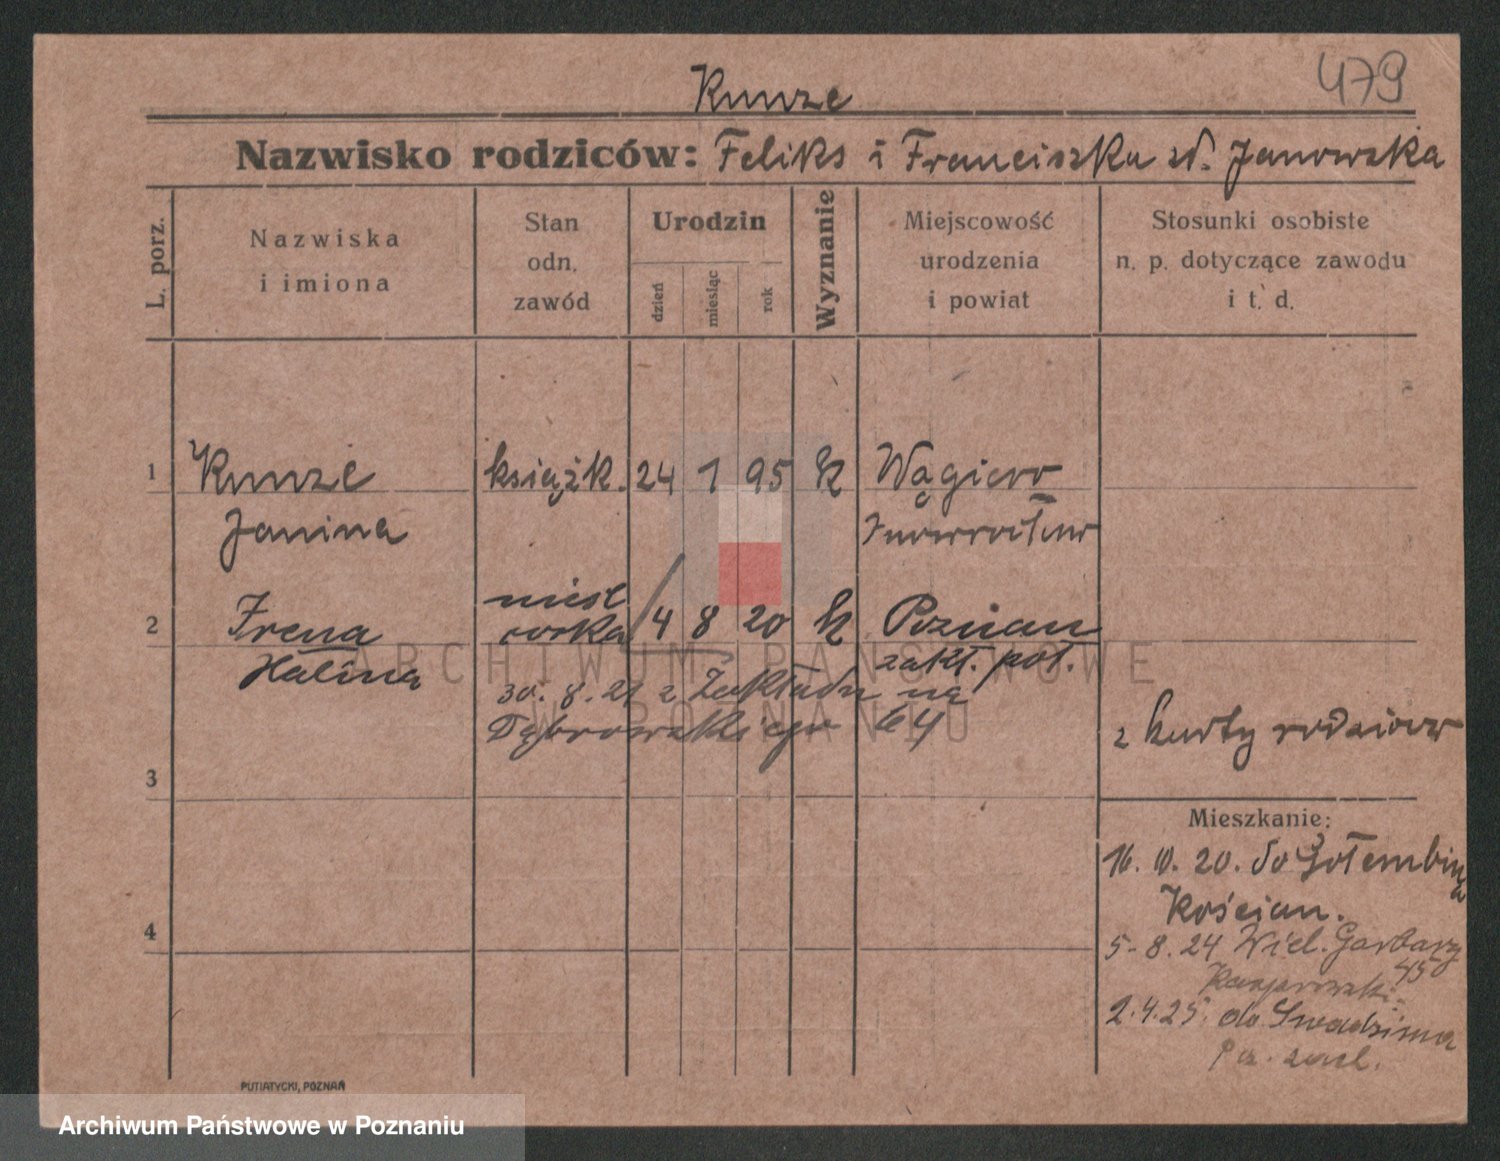 479
Kunze
Nazwisko rodziców: Feliks i Franciszka zd. Janowska
L. porz.
Nazwiska
i imiona
Stan
odn.
zawód
Urodzin
dzień
miesiąc
rok
Wyznanie
Miejscowość
urodzenia
i powiat
Stosunki osobiste
n. p. dotyczące zawodu
i t. d.
1 Kunze książk. 24 1 95 k
Janina
2 Irena 4 8 20 k Poznań
Halina
zakł. poł.
30. 8. 21 z Zakładu na
Dąbrowskiego 64
z karty rodziców
3
4
Mieszkanie:
16. 10. 20. do Gołembina
Kościan.
5-8.24 Wiel. Garbary
45
2.4.25. do Swadzima
ARCHIWUM PAŃSTWOWE
W POZNANIU
PUTIATYCKI, POZNAŃ
Archiwum Państwowe w Poznaniu